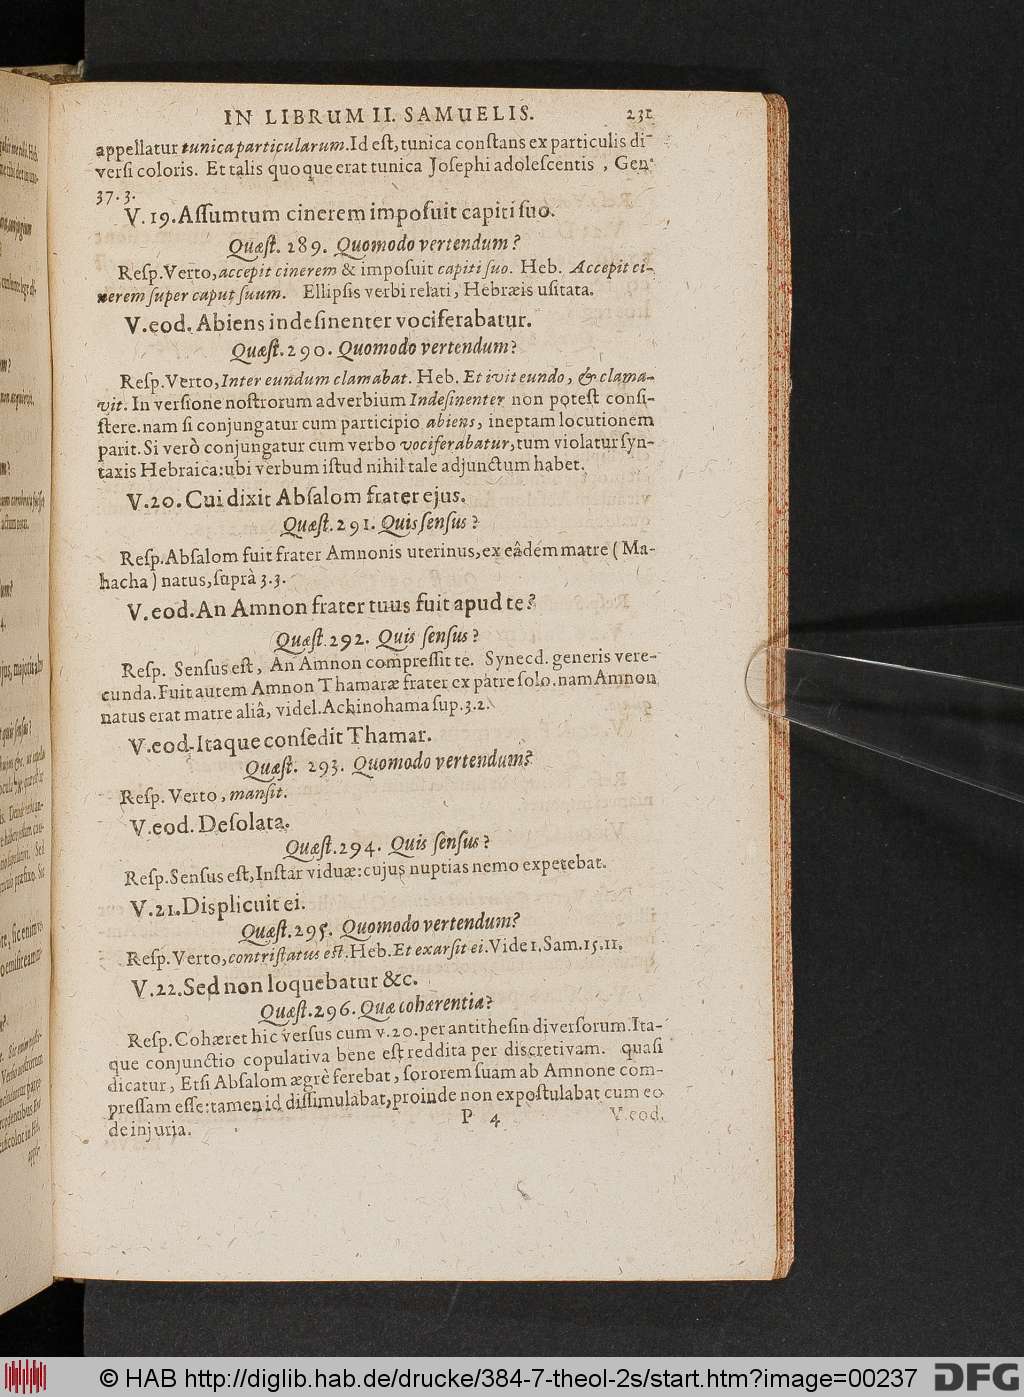 IN LIBRUM II. SAMUELIS. 231
appellatur tunica particularum. Id est, tunica constans ex particulis di-
versi coloris. Et talis quoque erat tunica Josephi adolescentis, Gen.
37. 3.
V. 19. Assumtum cinerem imposuit capiti suo.
Quæst. 289. Quomodo vertendum?
Resp. Verto, accepit cinerem & imposuit capiti suo. Heb. Accepit ci-
nerem super caput suum. Ellipsis verbi relati, Hebræis usitata.
V. eod. Abiens indesinenter vociferabatur.
Quæst. 290. Quomodo vertendum?
Resp. Verto, Inter eundum clamabat. Heb. Et ivit eundo, & clama-
vit. In versione nostrorum adverbium Indesinenter non potest consi-
stere. nam si conjungatur cum participio abiens, ineptam locutionem
parit. Si verò conjungatur cum verbo vociferabatur, tum violatur syn-
taxis Hebraica: ubi verbum istud nihil tale adjunctum habet.
V. 20. Cui dixit Absalom frater ejus.
Quæst. 291. Quis sensus?
Resp. Absalom fuit frater Amnonis uterinus, ex eâdem matre (Ma-
hacha) natus, suprà 3. 3.
V. eod. An Amnon frater tuus fuit apud te?
Quæst. 292. Quis sensus?
Resp. Sensus est, An Amnon compressit te. Synecd. generis vere-
cunda. Fuit autem Amnon Thamaræ frater ex patre solo. nam Amnon
natus erat matre aliâ, videl. Achinohama sup. 3. 2.
V. eod. Itaque consedit Thamar.
Quæst. 293. Quomodo vertendum?
Resp. Verto, mansit.
V. eod. Desolata.
Quæst. 294. Quis sensus?
Resp. Sensus est, Instar viduæ: cujus nuptias nemo expetebat.
V. 21. Displicuit ei.
Quæst. 295. Quomodo vertendum?
Resp. Verto, contristatus est. Heb. Et exarsit ei. Vide 1. Sam. 15. 11.
V. 22. Sed non loquebatur &c.
Quæst. 296. Quæ cohærentia?
Resp. Cohæret hic versus cum v. 20. per antithesin diversorum. Ita-
que conjunctio copulativa bene est reddita per discretivam. quasi
dicatur, Etsi Absalom ægrè ferebat, sororem suam ab Amnone com-
pressam esse: tamen id dissimulabat, proinde non expostulabat cum eo
de injuria.
P 4 V. eod.
© HAB http://diglib.hab.de/drucke/384-7-theol-2s/start.htm?image=00237
DFG